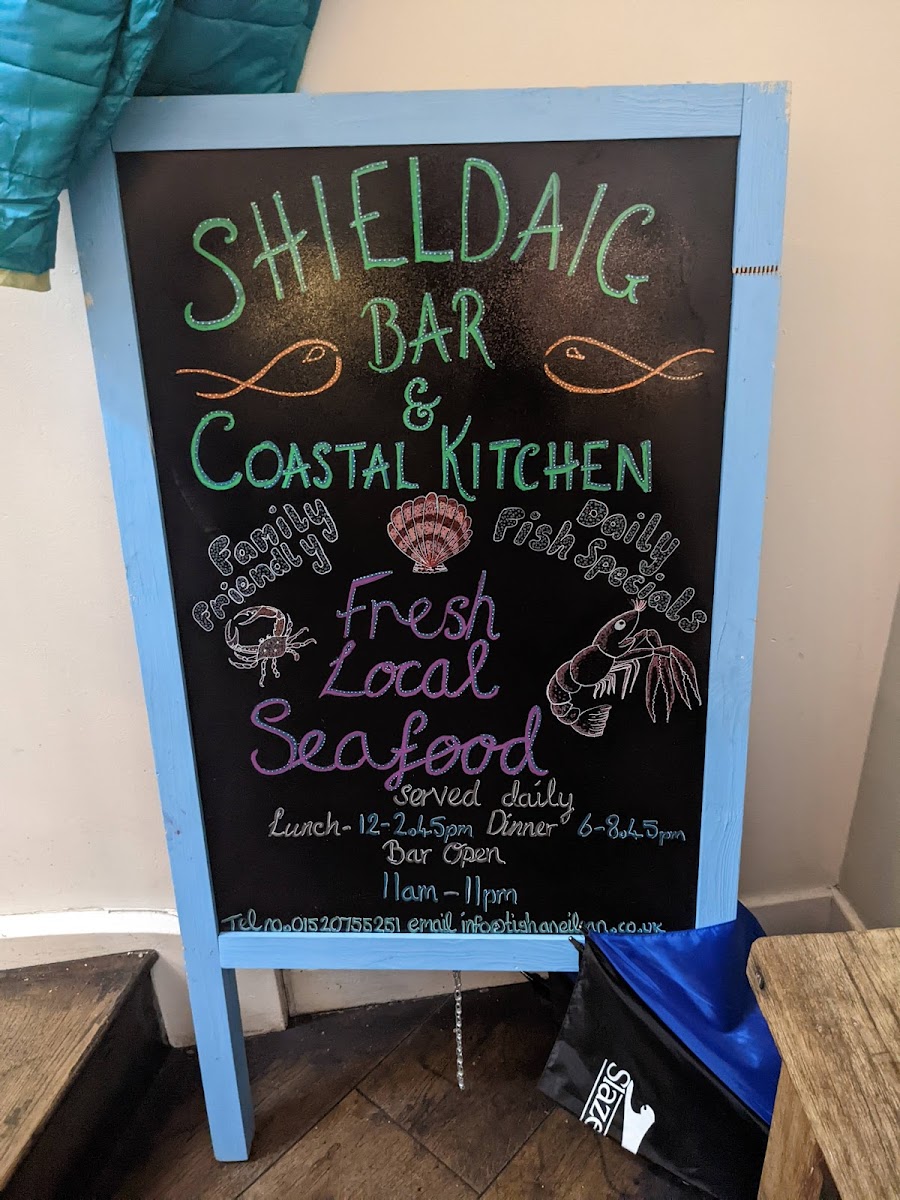 SHIELDAIG
BAR
&
COASTAL KITCHEN
Family
Friendly
Daily
Fish Specials
Fresh
Local
Seafood
served daily
Lunch - 12-2.45pm Dinner 6-8.45pm
Bar Open
11am - 11pm
Tel no. 01520755251 email info@tighaneilean.co.uk
Slaze